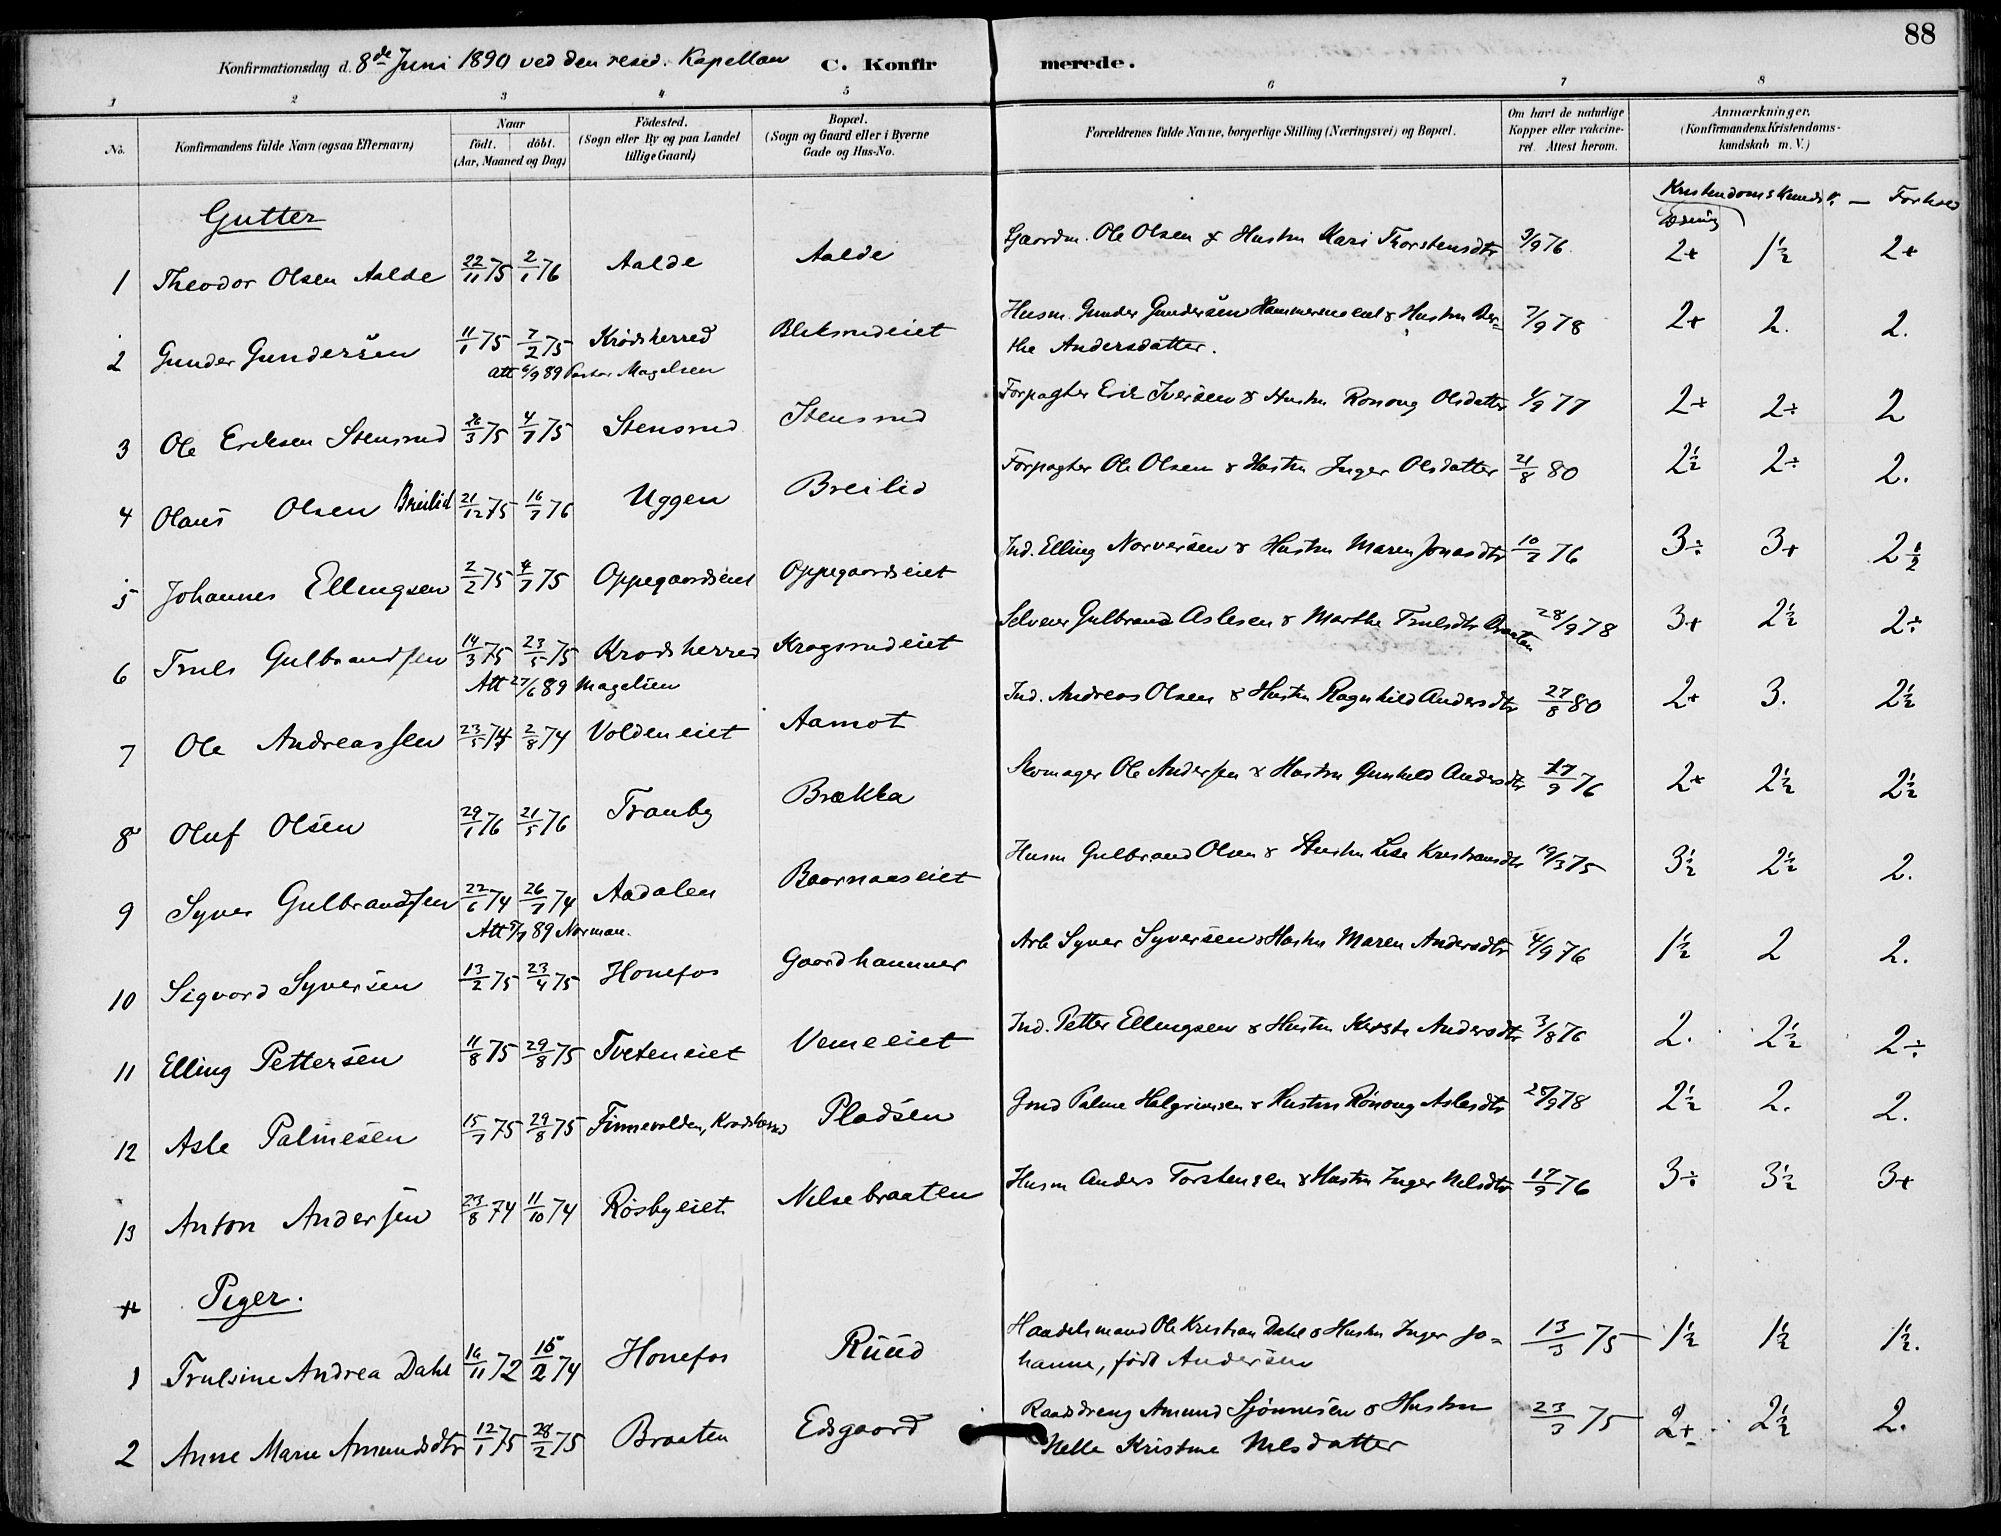 88
Konfirmationsdag d. 8de Juni 1890 ved den resid. Kapellan C. Konfirmerede.
1 2 3 4 5 6 7 8
No. Konfirmandens fulde Navn (ogsaa Efternavn) Naar født. døbt. (Aar, Maaned og Dag) Födested. (Sogn eller By og paa Landet tillige Gaard) Bopæl. (Sogn og Gaard eller i Byerne Gade og Hus-No. Forældrenes fulde Navne, borgerlige Stilling (Næringsvei) og Bopæl. Om havt de naturlige Kopper eller vakcineret. Attest herom. Anmærkninger. (Konfirmandens Kristendomskundskab m. V.)
Gutter
Kristendomskundsk. — Forhold
Læsning
1 Theodor Olsen Aalde 22/11 75 2/1 76 Aalde Aalde Gaardm. Ole Olsen & Hustru Kari Thorstensdtr 3/9 76 2+ 1½ 2+
2 Gunder Gundersen 11/1 75 7/2 75 Krødsherred Bliksrudeiet Husm. Gunder Gundersen & Hustru Ber=
the Andersdatter. 7/9 78 2+ 2. 2.
Att 6/9 89 Pastor Magelsen
3 Ole Eriksen Stensrud 26/3 75 4/7 75 Stensrud Stensrud Forpagter Erik Iversen & Hustru Ronong Olsdatter 1/9 77 2+ 2÷ 2
4 Olaus Olsen Breilid 21/12 75 16/7 76 Uggen Breilid Forpagter Ole Olsen & Hustru Inger Olsdatter 21/8 80 2½ 2÷ 2.
5 Johannes Ellingsen 2/2 75 4/7 75 Oppegaardseiet Oppegaardseiet Ind. Elling Narvesen & Hustru Maren Jonasdtr 10/7 76 3÷ 3+ 2½
6 Truls Gulbrandsen 14/3 75 23/5 75 Krødsherred Kragsrudeiet Selveier Gulbrand Aslesen & Marthe Trulsdtr Braaten 28/9 78 3+ 2½ 2÷
Att 27/6 89 Magelsen
7 Ole Andreassen 23/5 74 2/8 74 Voldeneiet Aamot Ind. Andreas Olsen & Hustru Ragnhild Andersdtr 27/8 80 2+ 3. 2½
8 Oluf Olsen 29/1 76 21/5 76 Tranby Brækka Skomager Ole Andersen & Hustru Gunhild Andersdtr 17/9 76 2+ 2½ 2½
9 Syver Gulbrandsen 22/6 74 26/7 74 Aadalen Baarnaaseiet Husm Gulbrand Olsen & Hustru Lise Kristiansdtr 19/3 75 3½ 2½ 2.
Att 5/7 89 Norman.
10 Sigvard Syversen 13/2 75 23/4 75 Honefos Gaardhammer Arb Syver Syversen & Hustru Maren Andersdtr 4/9 76 1½ 2 2.
11 Elling Pettersen 11/8 75 29/8 75 Tveteneiet Vemeeiet Ind. Petter Ellingsen & Hustru Kirsti Andersdtr 3/8 76 2. 2½ 2÷
12 Asle Palmesen 15/7 75 29/8 75 Finnevolden, Krødsherred Pladsen Gmd Palme Halgrimsen & Hustru Rønoug Aslesdtr 28/9 78 2½ 2. 2.
13 Anton Andersen 23/8 74 11/10 74 Røsbyeiet Nilsebraaten Husm Anders Torstensen & Hustru Inger Nilsdtr 17/9 76 3÷ 3½ 3+
Piger.
1 Trulsine Andrea Dahl 16/11 72 15/2 74 Honefos Ruud Handelsmand Ole Kristian Dahl & Hustru Inger Jo=
hanne, født Andersen 13/3 75 1½ 1½ 1½.
2 Anne Marie Amundsdtr 12/1 75 28/2 75 Braaten Edsgaard Raadsdreng Amund Sjønnesen & Hustru
Helle Kristine Nilsdatter 23/3 75 2+ 2½ 2.